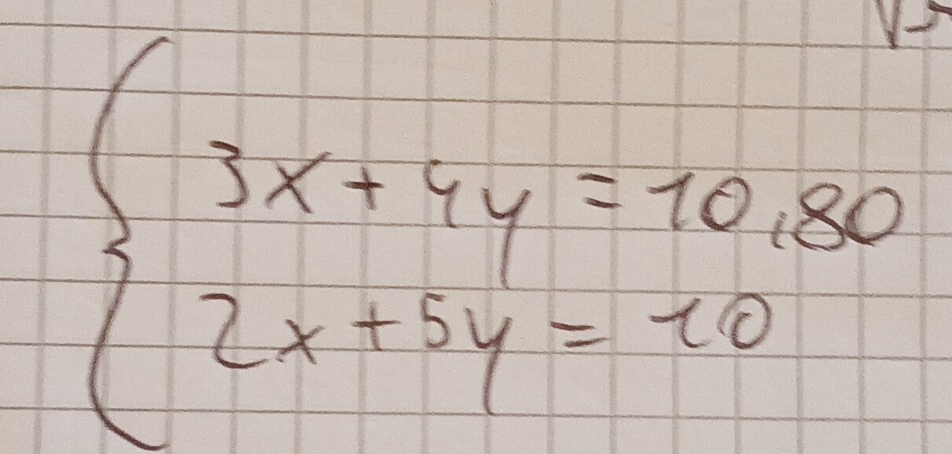 3x + 4y = 10,80
2x + 5y = 10